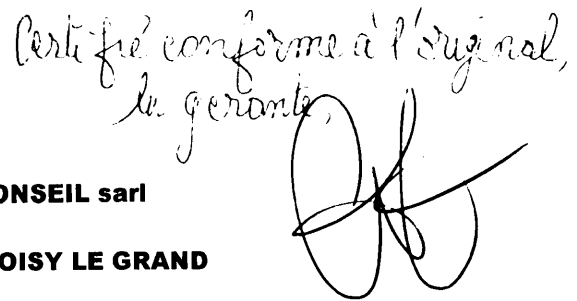 Certifié conforme à l'original,
la gerante,
ONSEIL sarl
OISY LE GRAND